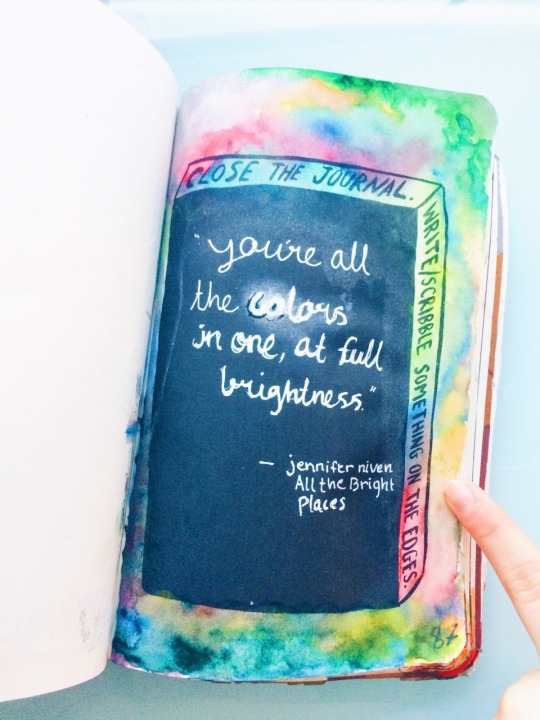 CLOSE THE JOURNAL.
WRITE/SCRIBBLE SOMETHING ON THE EDGES.
"you're all
the colors
in one, at full
brightness."
— jennifer niven
All the Bright
Places